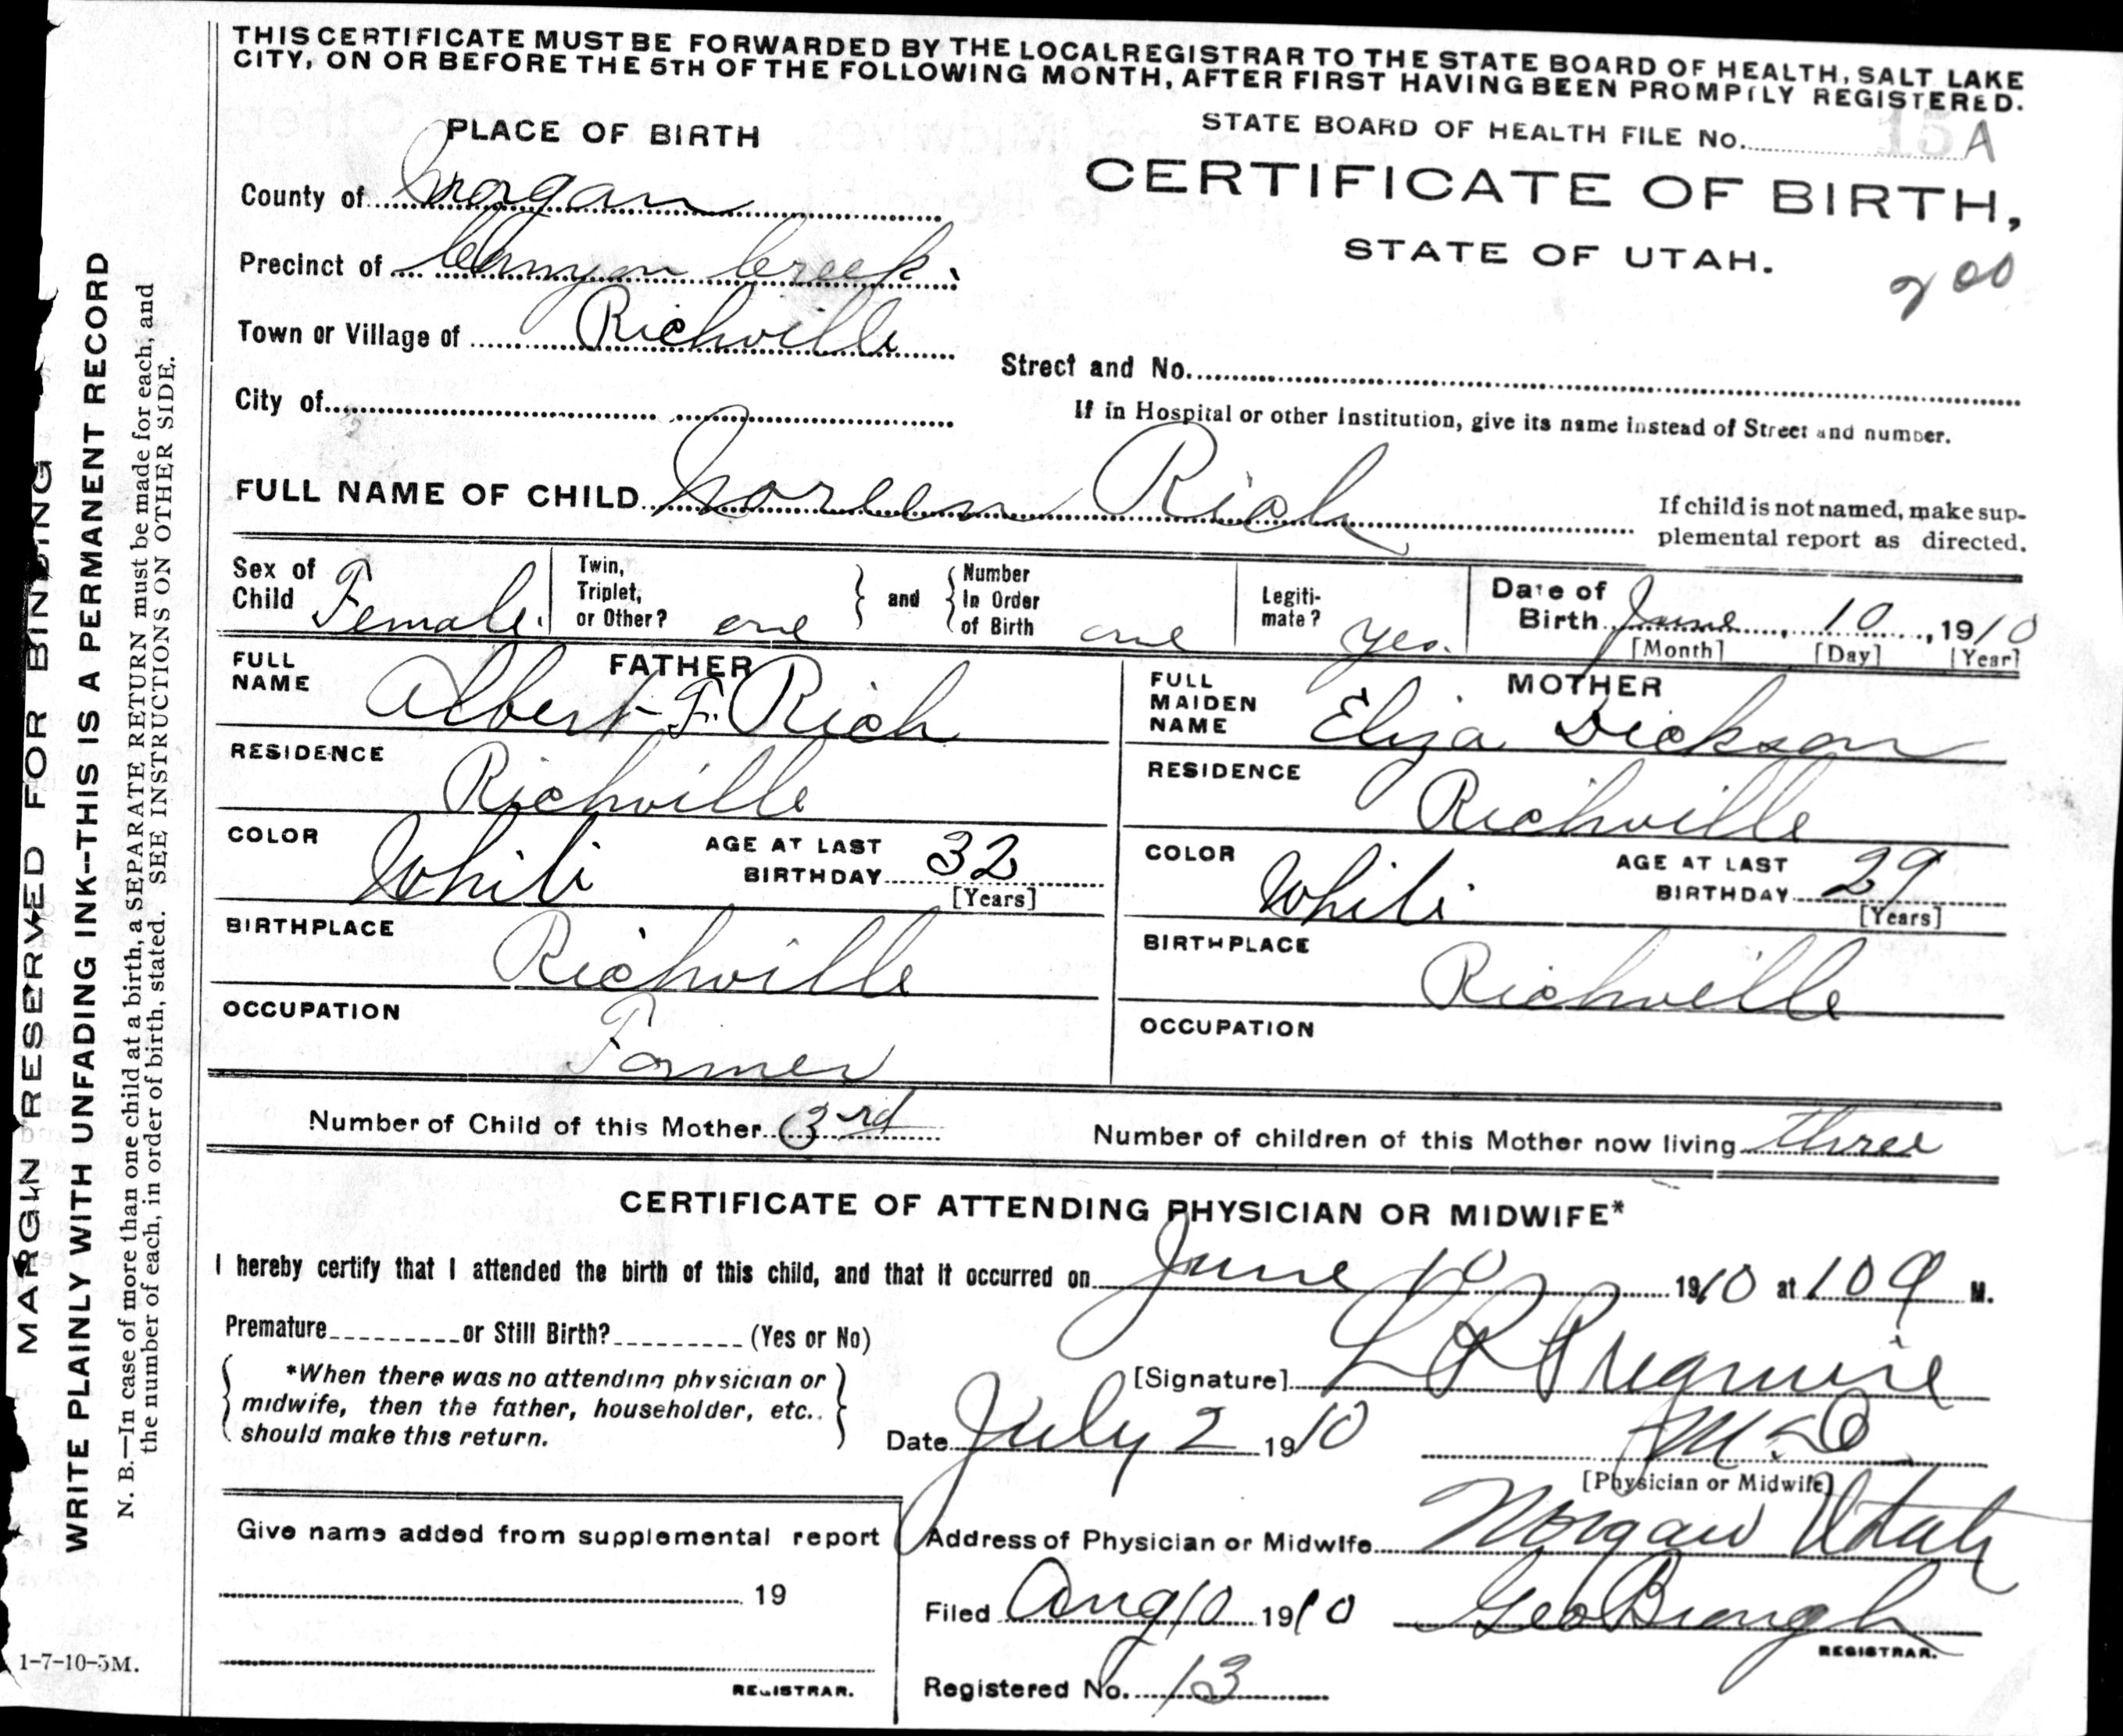 THIS CERTIFICATE MUST BE FORWARDED BY THE LOCAL REGISTRAR TO THE STATE BOARD OF HEALTH, SALT LAKE
CITY, ON OR BEFORE THE 5TH OF THE FOLLOWING MONTH, AFTER FIRST HAVING BEEN PROMPTLY REGISTERED.
PLACE OF BIRTH
STATE BOARD OF HEALTH FILE No. 15 A
County of Morgan
CERTIFICATE OF BIRTH,
Precinct of Canyon Creek.
STATE OF UTAH.
200
Town or Village of Richville
Street and No.
City of
If in Hospital or other Institution, give its name instead of Street and number.
FULL NAME OF CHILD Noreen Rich
If child is not named, make sup-
plemental report as directed.
Sex of Child Female.
Twin, Triplet, or Other? one
and
Number In Order of Birth one
Legiti-mate? yes.
Date of Birth June, 10, 1910
[Month] [Day] [Year]
FATHER
FULL NAME Albert F. Rich
MOTHER
FULL MAIDEN NAME Eliza Dickson
RESIDENCE Richville
RESIDENCE Richville
COLOR White AGE AT LAST BIRTHDAY 32 [Years]
COLOR White AGE AT LAST BIRTHDAY 29 [Years]
BIRTHPLACE Richville
BIRTHPLACE Richville
OCCUPATION Farmer
OCCUPATION
Number of Child of this Mother 3rd
Number of children of this Mother now living three
CERTIFICATE OF ATTENDING PHYSICIAN OR MIDWIFE*
I hereby certify that I attended the birth of this child, and that it occurred on June 10 1910 at 10 a M.
Premature or Still Birth? (Yes or No)
*When there was no attending physician or
midwife, then the father, householder, etc..
should make this return.
[Signature]
Date July 2 1910
M D
[Physician or Midwife]
Address of Physician or Midwife Morgan Utah
Give name added from supplemental report
19
REGISTRAR.
Filed Aug 10 1910 Geo Brough
REGISTRAR.
Registered No. 13
1-7-10-5M.
MARGIN RESERVED FOR BINDING
WRITE PLAINLY WITH UNFADING INK--THIS IS A PERMANENT RECORD
N. B.—In case of more than one child at a birth, a SEPARATE RETURN must be made for each, and
the number of each, in order of birth, stated. SEE INSTRUCTIONS ON OTHER SIDE.